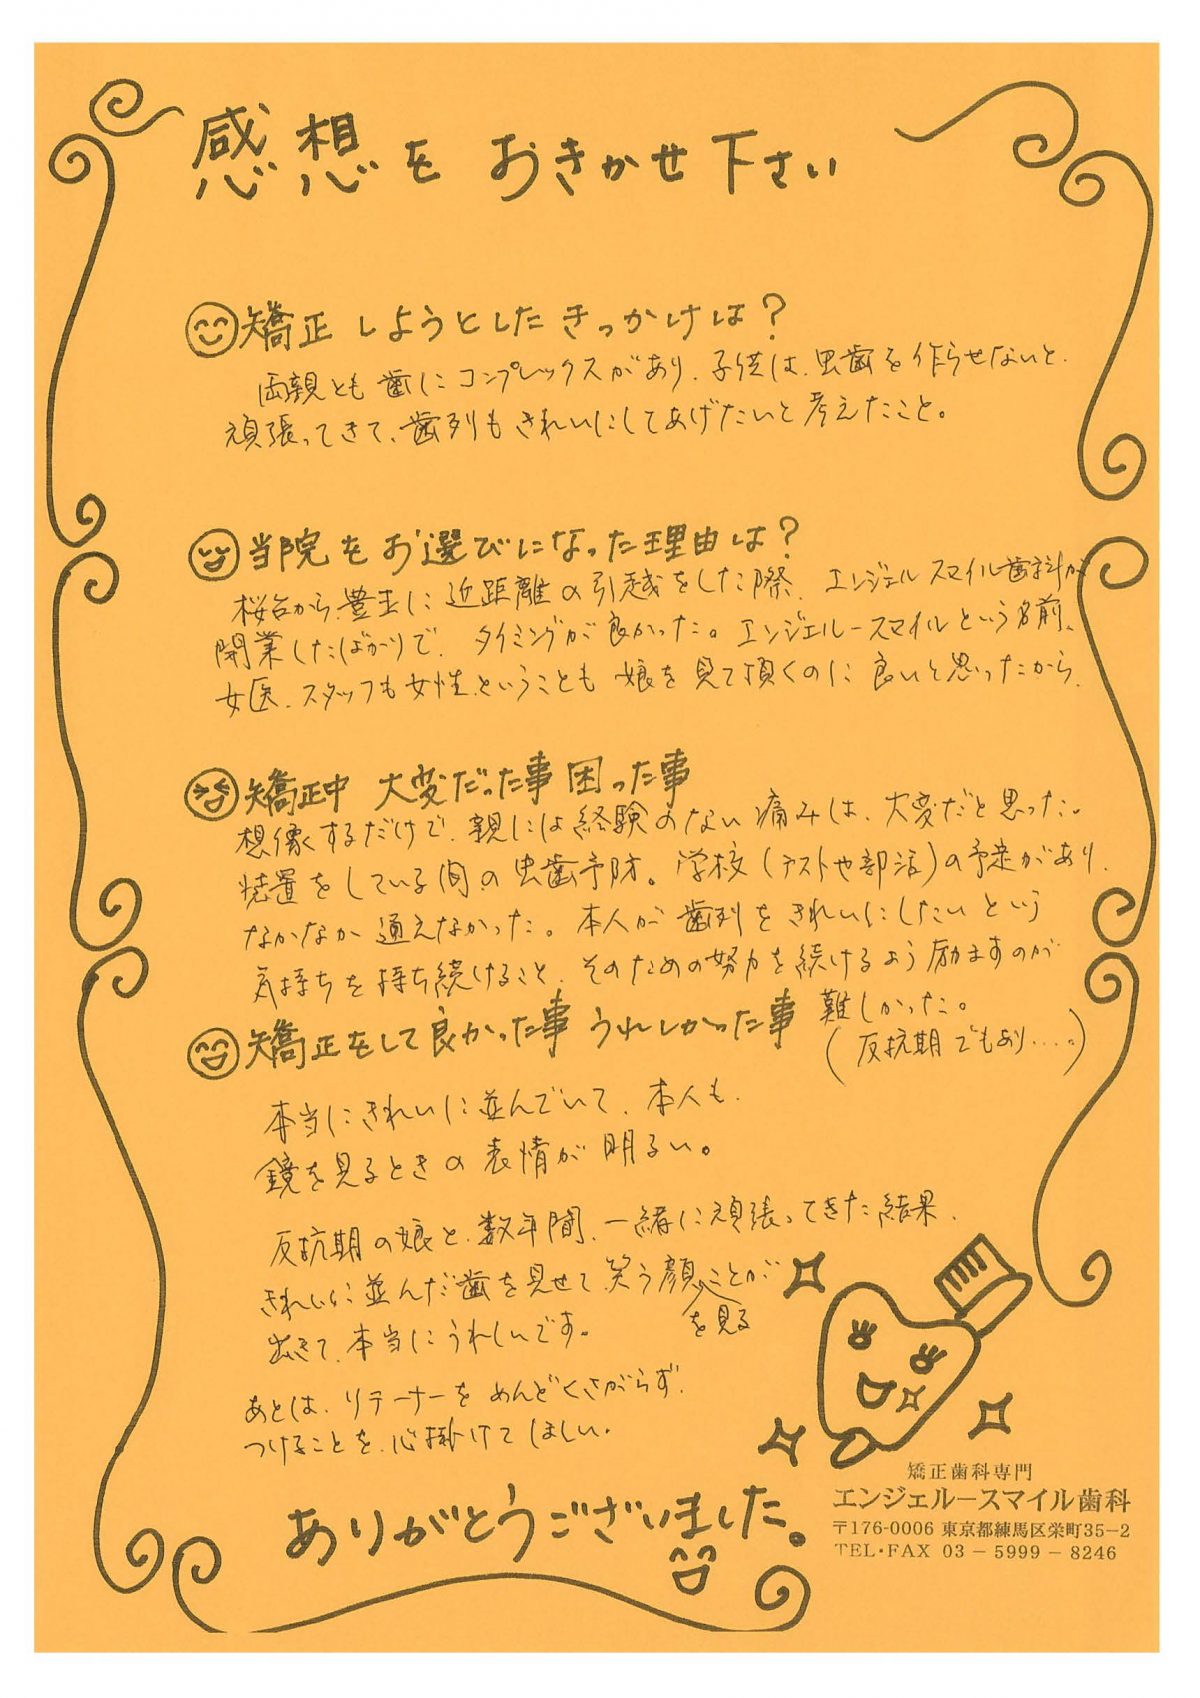 感想をおきかせ下さい
矯正しようとしたきっかけは?
両親とも歯にコンプレックスがあり、子供は、虫歯を作らせないと、
頑張ってきて、歯列もきれいにしてあげたいと考えたこと。
当院をお選びになった理由は?
桜台から、豊玉に近距離の引越をした際、エンジェルスマイル歯科が
開業したばかりで、タイミングが良かった。エンジェルースマイルという名前、
女医、スタッフも女性、ということも娘を見て頂くのに良いと思ったから、
矯正中 大変だった事 困った事
想像するだけで、親には経験のない痛みは、大変だと思った。
装置をしている間の虫歯予防。学校(テストや部活)の予定があり、
なかなか通えなかった。本人が歯列をきれいにしたいという
気持ちを持ち続けること、そのための努力を続けるよう励ますのが
難しかった。
(反抗期でもあり....。)
矯正をして良かった事 うれしかった事
本当にきれいに並んでいて、本人も、
鏡を見るときの表情が明るい。
反抗期の娘と、数年間、一緒に頑張ってきた結果、
きれいに並んだ歯を見せて、笑う顔を見ることが
出きて、本当にうれしいです。
あとは、リテーナーをめんどくさがらず、
つけることを、心掛けてほしい。
ありがとうございました。
矯正歯科専門
エンジェルースマイル歯科
〒176-0006 東京都練馬区栄町35-2
TEL・FAX 03-5999-8246